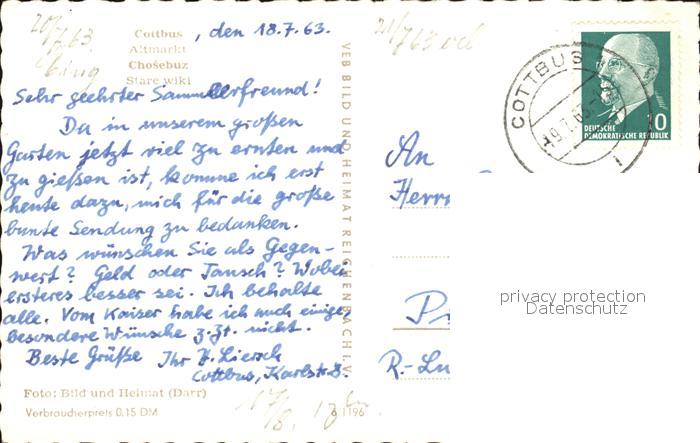 20/7.63
Cottbus
, den 18.7.63.
Altmarkt
Chośebuz
Stare wiki
Sehr geehrter Sammlerfreund!
Da in unserem großen
Garten jetzt viel zu ernten und
zu gießen ist, komme ich erst
heute dazu, mich für die große
bunte Sendung zu bedanken.
Was wünschen Sie als Gegen-
wert? Geld oder Tausch? Wobei
ersteres besser sei. Ich behalte
alle. Vom Kaiser habe ich auch einige,
besondere Wünsche z.Zt. nicht.
Beste Grüße Ihr Liersch
Cottbus, Karlstr.
Foto: Bild und Heimat (Darr)
Verbraucherpreis 0,15 DM
VEB BILD UND HEIMAT REICHENBACH I. V.
21/7 63
COTTBUS
19.7.63
1
10
DEUTSCHE
DEMOKRATISCHE REPUBLIK
An
Herrn
R.-Lu
privacy protection
Datenschutz
17/8.